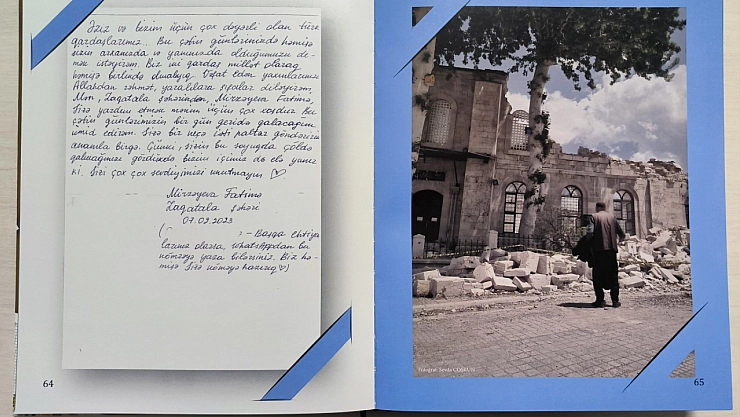 Əziz və bizim üçün çox dəyərli olan türk
qardaşlarımız... Bu çətin günlərinizdə həmişə
sizin arxanızda və yanınızda olduğumuzu de-
mək istəyirəm. Biz iki qardaş millət olaraq
həmişə birlikdə olmalıyıq. Vəfat edən yaxınlarınıza
Allahdan rəhmət, yaralılara şəfalar diləyirəm.
Mən, Zaqatala şəhərindən, Mirzəyeva Fatimə,
Sizə yardım etmək mənim üçün çox xoşdur. Bu
çətin günlərimizin bir gün geridə qalacağına
ümid edirəm. Sizə bir neçə isti paltar göndərirəm
anamla birgə. Çünki, sizin bu soyuqda çöldə
qalmağınızı gördükdə bizim içimiz də elə yanır
ki. Sizi çox çox sevdiyimizi unutmayın ♡
Mirzəyeva Fatimə
Zaqatala şəhəri
07.02.2023
( : - Başqa ehtiya
larınız olarsa, WhatsAppdan bu
nömrəyə yaza bilərsiniz. Biz hə-
mişə Sizə köməyə hazırıq ♡)
64
Fotoğraf: Sevda COŞKUN
65